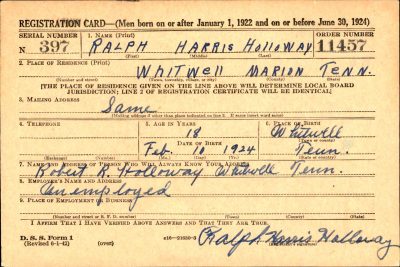 REGISTRATION CARD—(Men born on or after January 1, 1922 and on or before June 30, 1924)
SERIAL NUMBER 1. NAME (Print) ORDER NUMBER
N 397 RALPH HARRIS HOLLOWAY 11457
(First) (Middle) (Last)
2. PLACE OF RESIDENCE (Print)
WHITWELL MARION TENN.
(Number and street) (Town, township, village, or city) (County) (State)
[THE PLACE OF RESIDENCE GIVEN ON THE LINE ABOVE WILL DETERMINE LOCAL BOARD
JURISDICTION; LINE 2 OF REGISTRATION CERTIFICATE WILL BE IDENTICAL]
3. MAILING ADDRESS
Same
(Mailing address if other than place indicated on line 2. If same insert word same)
4. TELEPHONE 5. AGE IN YEARS 6. PLACE OF BIRTH
18 Whitwell
DATE OF BIRTH (Town or county)
Feb. 10 1924 Tenn.
(Mo.) (Day) (Yr.) (State or country)
7. NAME AND ADDRESS OF PERSON WHO WILL ALWAYS KNOW YOUR ADDRESS
Robert R. Holloway Whitwell Tenn.
8. EMPLOYER'S NAME AND ADDRESS
Unemployed
9. PLACE OF EMPLOYMENT OR BUSINESS
(Number and street or R. F. D. number) (Town) (County) (State)
I AFFIRM THAT I HAVE VERIFIED ABOVE ANSWERS AND THAT THEY ARE TRUE.
D. S. S. Form 1
(Revised 6-1-42) (over) Ralph Harris Holloway